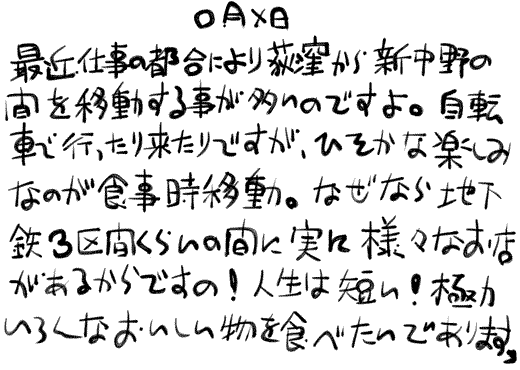 〇月×日
最近仕事の都合により荻窪から新中野の
間を移動する事が多いのですよ。自転
車で行ったり来たりですが、ひそかな楽しみ
なのが食事時移動。なぜなら地下
鉄3区間くらいの間に実に様々なお店
があるからですの！人生は短い！極力
いろんなおいしい物を食べたいであります。